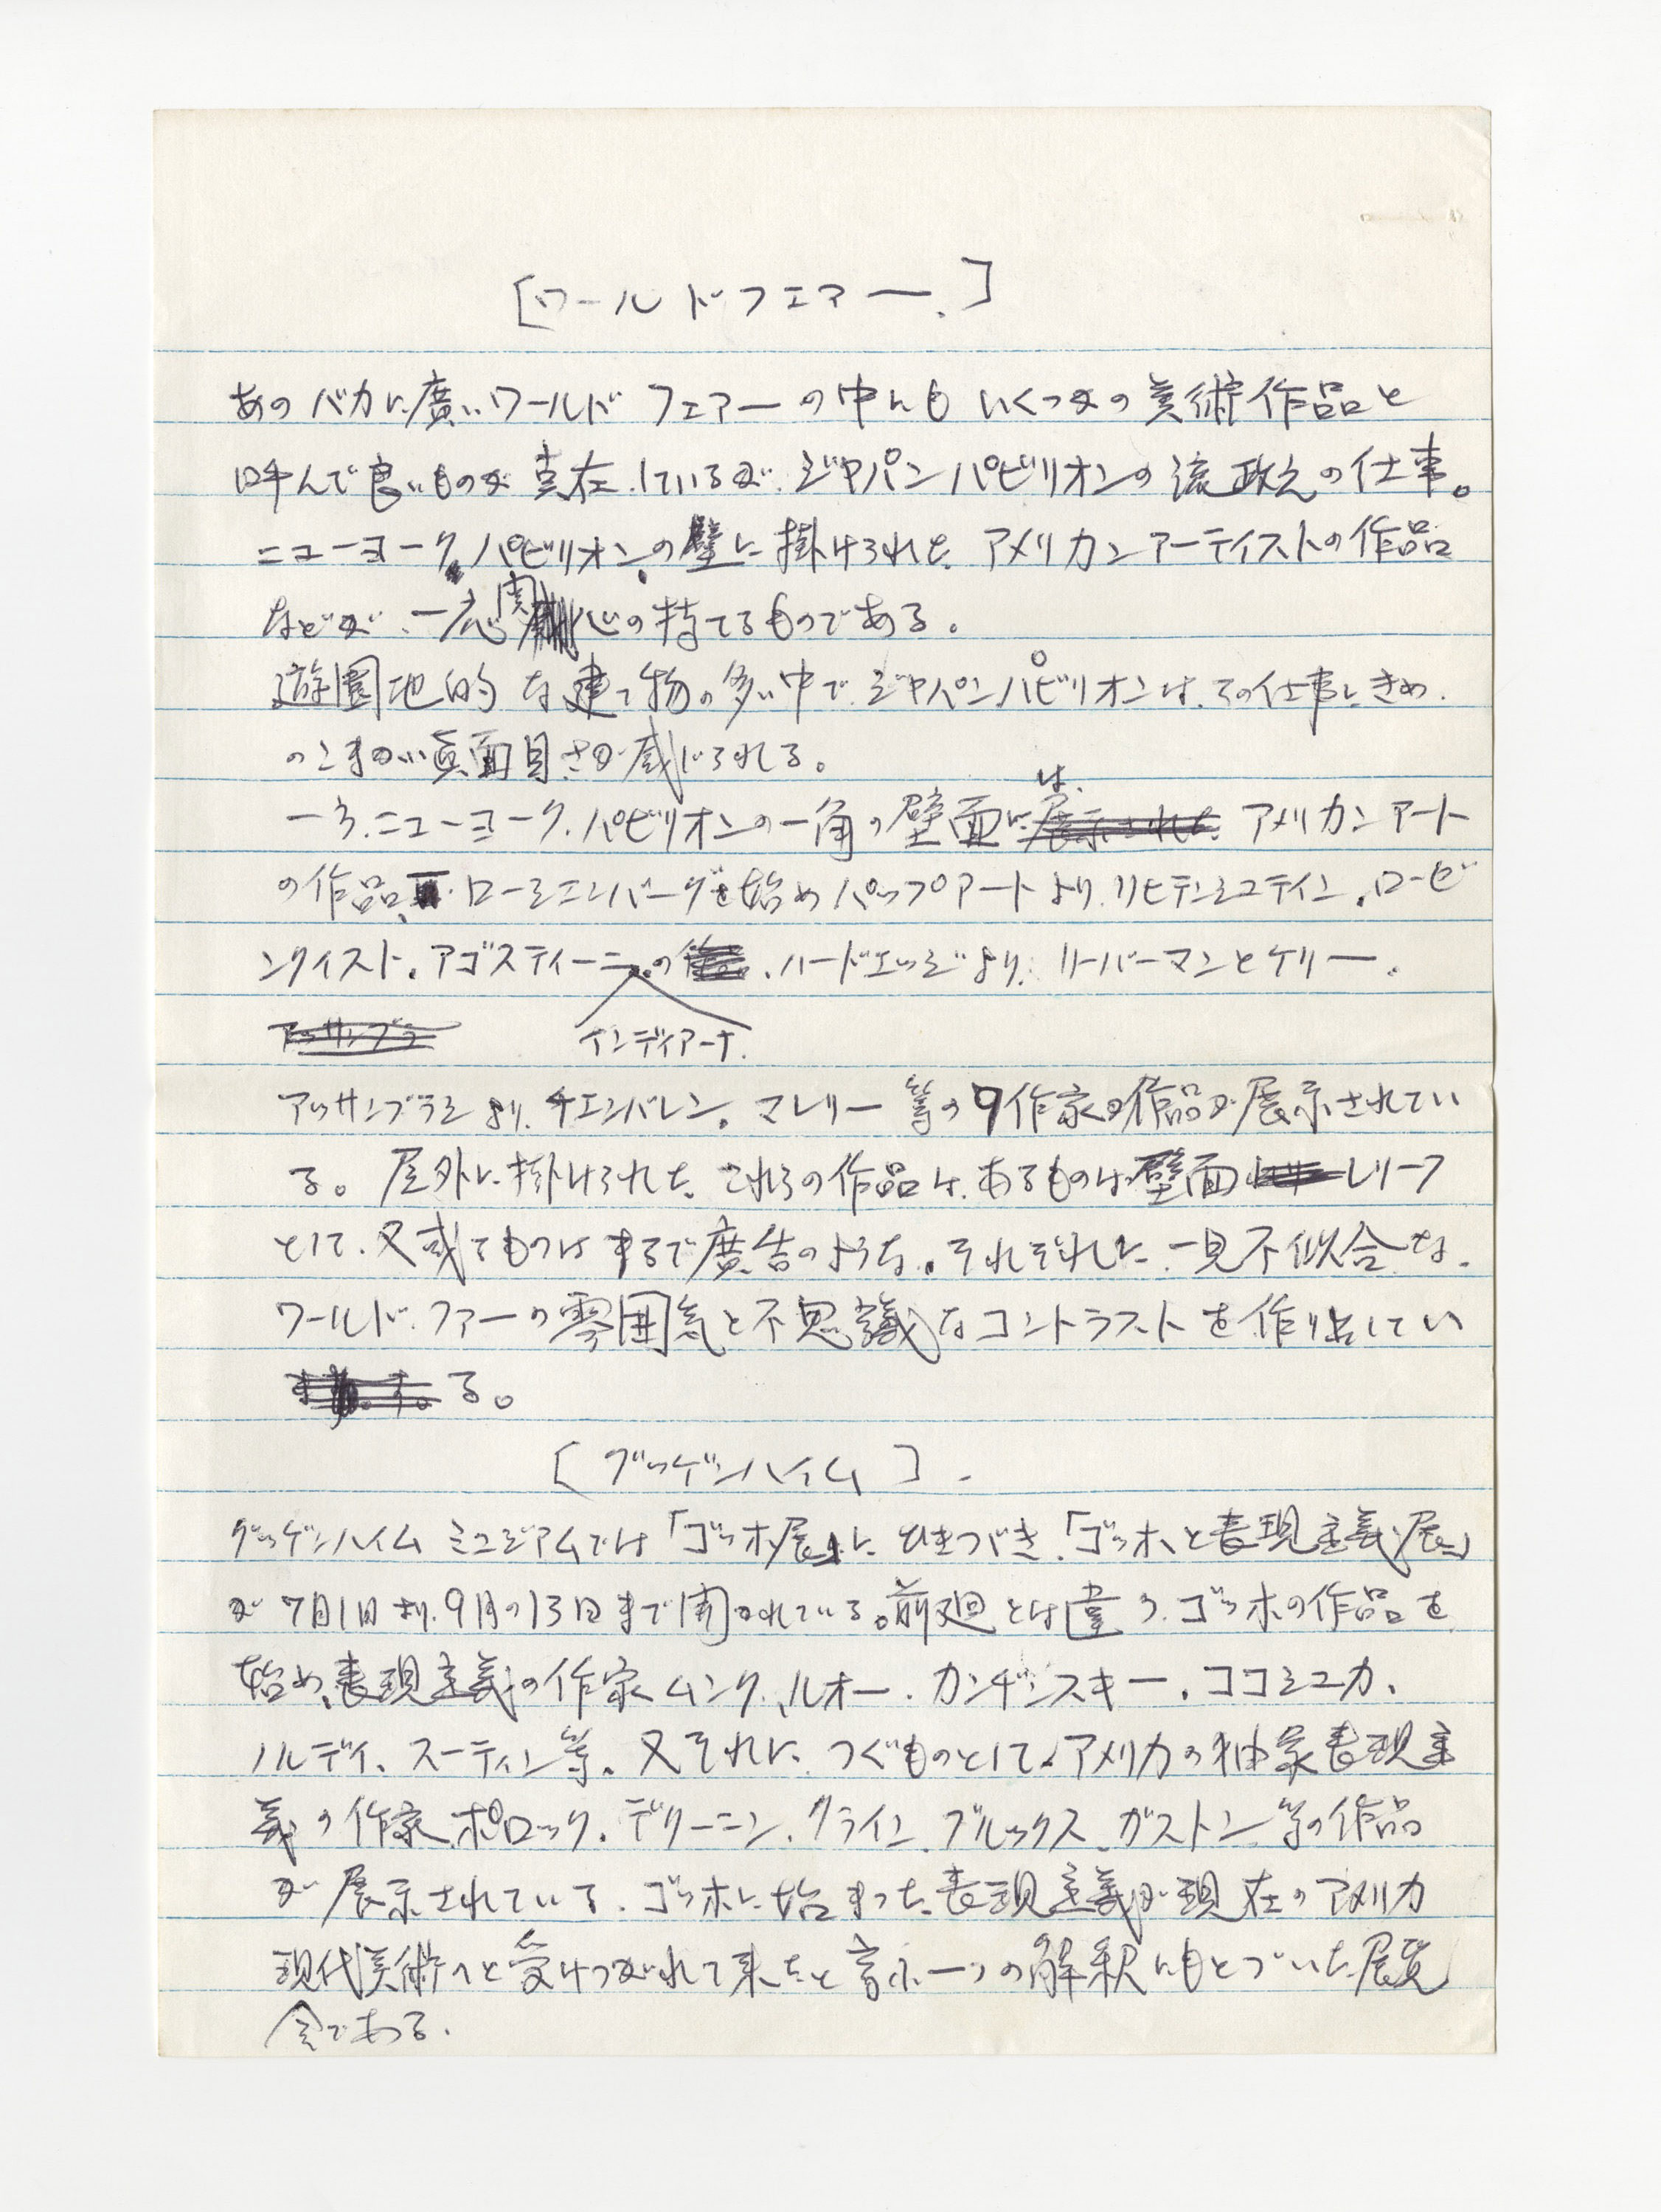 [ワールドフェアー.]
あのバカに廣いワールドフェアーの中にもいくつかの美術作品と
呼んで良いものが点在しているが、ジャパンパビリオンの流政之の仕事。
ニューヨーク、パビリオンの壁に掛けられた、アメリカンアーティストの作品
などが、一応関心の持てるものである。
遊園地的な建て物の多い中で、ジャパンパビリオンは、その仕事にきめ.
のこまかい真面目さが感じられる。
一方、ニューヨーク.パビリオンの一角の壁面には、アメリカンアート
の作品、ローシェンバーグを始めパップアートより、リヒテンシュテイン.ローゼ
ンクイスト.アゴスティーニ.の.ハードエッジより、リーバーマンとケリー.
インディアーナ.
アッサンブラシより、チェンバレン。マレリー等の9作家の作品が展示されてい
る。屋外に掛けられた、これらの作品は、あるものは壁面レリーフ
として、又或るものはまるで廣告のような。それぞれに、一見不似合な.
ワールド.ファーの雰囲気と不思議なコントラストを作り出してい
る。
[グッゲンハイム].
グッゲンハイムミュジアムでは「ゴッホ展」に、ひきつづき、「ゴッホと表現主義展」
が7月1日より、9月の13日まで開かれている。前廻とは違う、ゴッホの作品を
始め、表現主義の作家ムンク、ルオー.カンヂンスキー.ココシュカ、
ノルデイ、スーティン等、又それに、つぐものとして、アメリカの抽象表現主
義の作家、ポロック.デクーニン.クライン.ブルックス、ガストン等の作品
が展示されている.ゴッホに始まった、表現主義が現在のアメリカ
現代美術へと受けつがれて来たと言ふ一つの解釈にもとづいた展覧
会である.